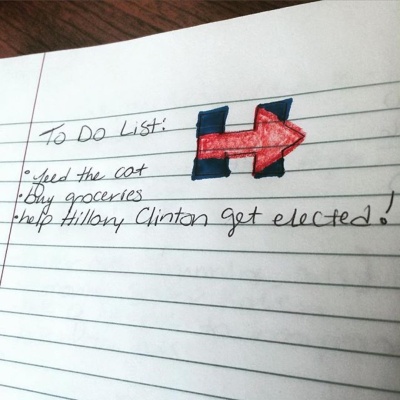 To Do List:
H
• feed the cat
• buy groceries
• help Hillary Clinton get elected!